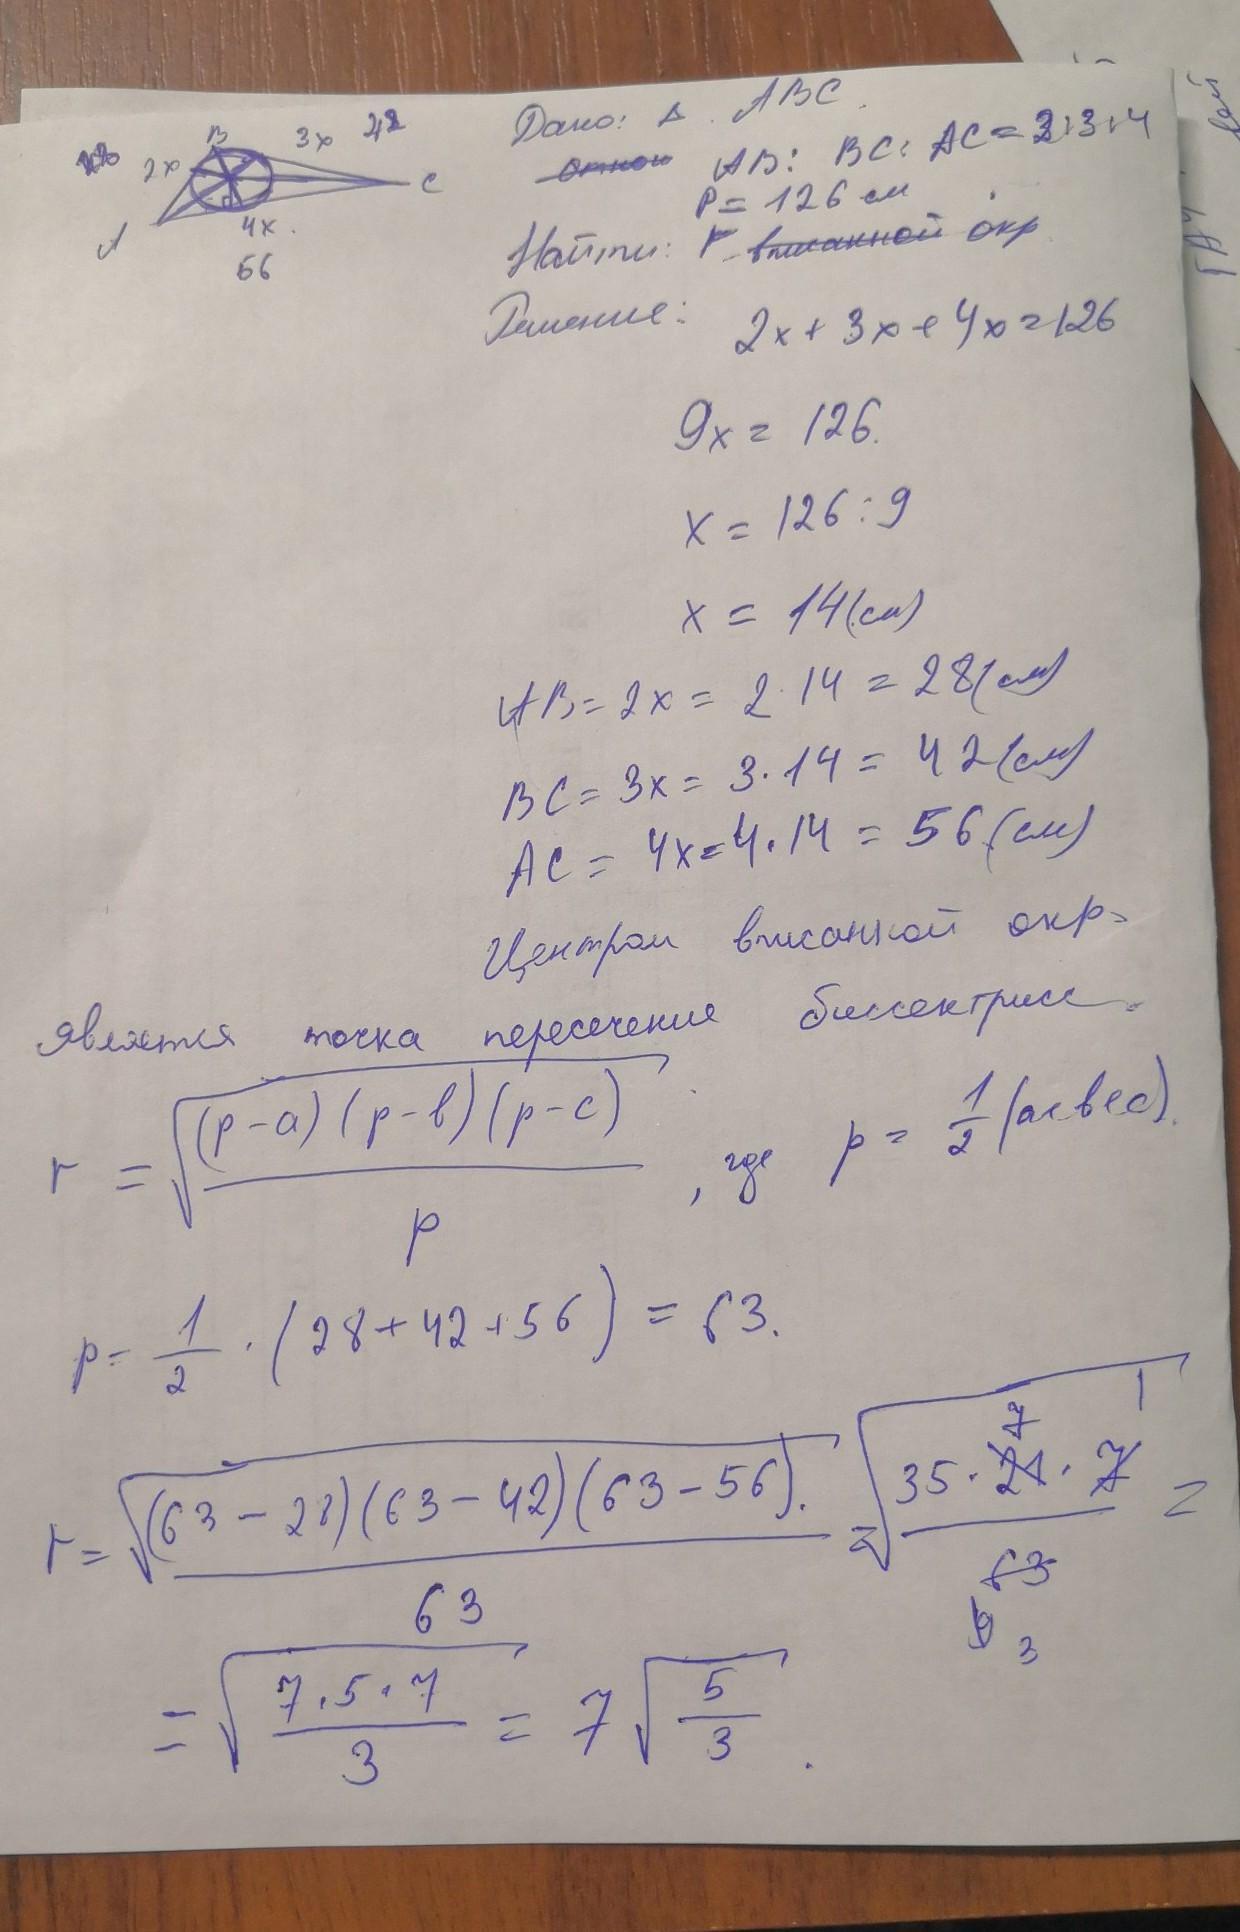 Дано: Δ ABC.
AB: BC: AC = 2:3:4
P = 126 см
B 3x 42
2x
C
A
4x.
56
Найти: r вписанной окр
Решение:
2x + 3x + 4x = 126
9x = 126.
x = 126 : 9
x = 14 (см)
AB = 2x = 2 · 14 = 28 (см)
BC = 3x = 3 · 14 = 42 (см)
AC = 4x = 4 · 14 = 56 (см)
Центром вписанной окр-
является точка пересечение биссектрисс.
r = √((p-a)(p-b)(p-c) / p), где p = 1/2 (a+b+c).
p = 1/2 · (28 + 42 + 56) = 63.
r = √((63 - 28)(63 - 42)(63 - 56) / 63) = √(35 · 21 · 7 / 63) =
7 1
9 3
= √(7 · 5 · 7 / 3) = 7 √(5/3).